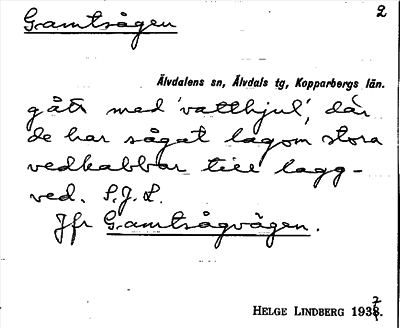 Gamtsågen 2
Älvdalens sn, Älvdals tg, Kopparbergs län.
gått med 'vatthjul', där
de har sågat lagom stora
vedkabbar till lagg-
ved. S.J.L.
Jfr Gamtsågvägen.
HELGE LINDBERG 1937.